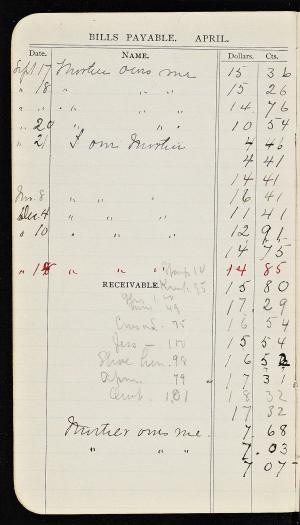 BILLS PAYABLE. APRIL.
Date. NAME. Dollars. Cts.
Sept 17 Mortier owes me 15 36
" 18 " " " 15 26
" " " " 14 76
" 20 " " " 10 54
" 21 I owe Mortier 4 46
4 41
14 41
Nov. 8 " " " 16 41
Dec. 4 " " " 11 41
" 10 " " 12 91
14 75
" 15 " " " 14 85
RECEIVABLE. 15 80
17 29
16 54
Jess — 100 15 54
Shoe 98 16 52
79 " 17 31
18 32
17 32
Mortier owes me. 7 68
" " " 7 03
7 07